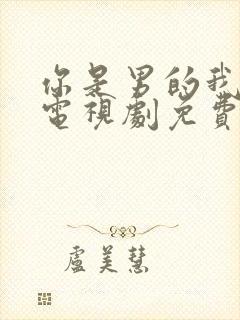 你是男的我
電視劇免費
盧美慧